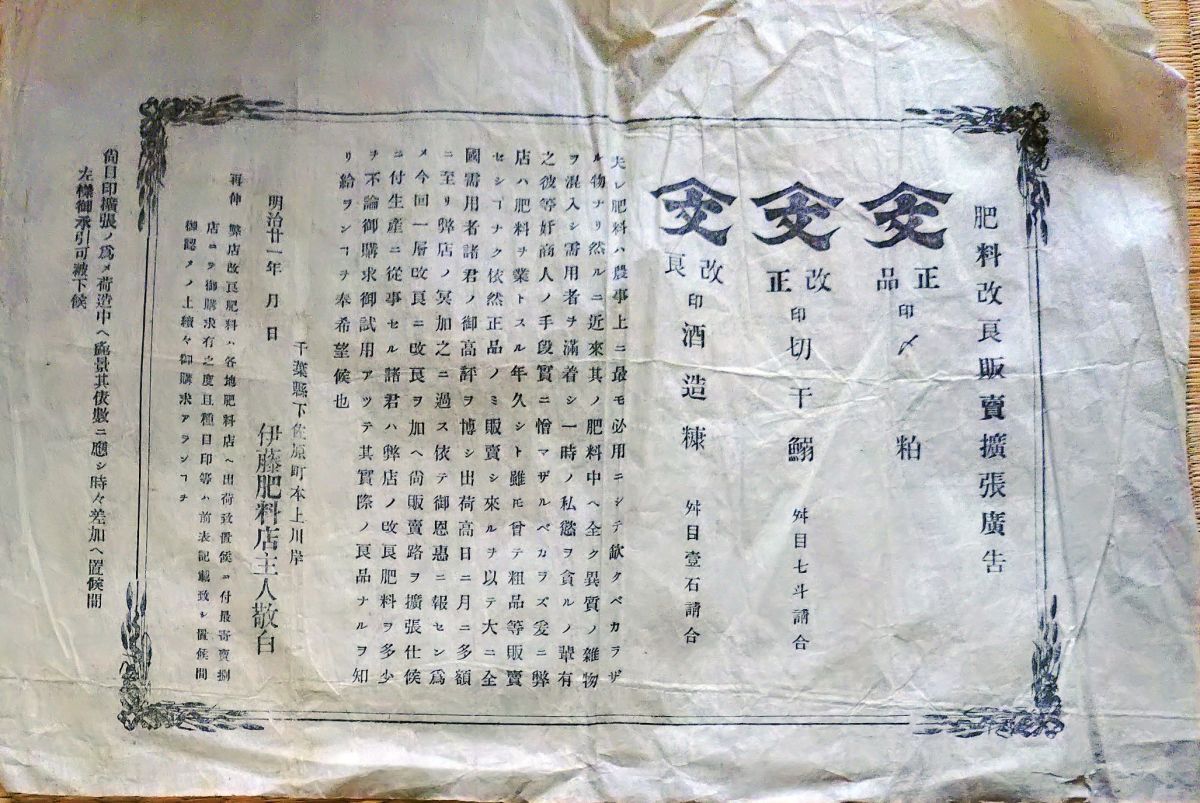 肥料改良販賣擴張廣告
正品印〆粕
改正印切干鰯 舛目七斗請合
改良印酒造糠 舛目壹石請合
夫レ肥料ハ農事上ニ最モ必用ニシテ欽クベカラザ
ル物ナリ然ルニ近來其ノ肥料中ヘ全ク異質ノ雑物
ヲ混入シ需用者ヲ滿着シ一時ノ私慾ヲ貪ルノ輩有
之彼等奸商人ノ手段實ニ憎マザルベカラズ爰ニ弊
店ハ肥料ヲ業トスル年久シト雖モ曾テ粗品等販賣
セシヿナク依然正品ノミ販賣シ來ルヲ以テ大ニ全
國需用者諸君ノ御高評ヲ博シ出荷高日ニ月ニ多額
ニ至リ弊店ノ冥加之ニ過ス依テ御恩惠ニ報セン爲
メ今回一層改良ニ改良ヲ加ヘ尙販賣路ヲ擴張仕候
ニ付生產ニ從事セル諸君ハ弊店ノ改良肥料ヲ多少
ヲ不論御購求御試用アツテ其實際ノ良品ナルヲ知
リ給ヲンヿヲ奉希望候也
千葉縣下佐原町本上川岸
明治廿一年 月 日 伊藤肥料店主人敬白
再伸 弊店改良肥料ハ各地肥料店ヘ出荷致置候ニ付最寄賣捌
店ニテ御購求有之度且種目印等ハ前表記載致シ置候間
御認メノ上續々御購求アランヿヲ
尙目印擴張ノ爲メ荷造中ヘ臨景其依數ニ應シ時々差加ヘ置候間
左樣御承引可被下候